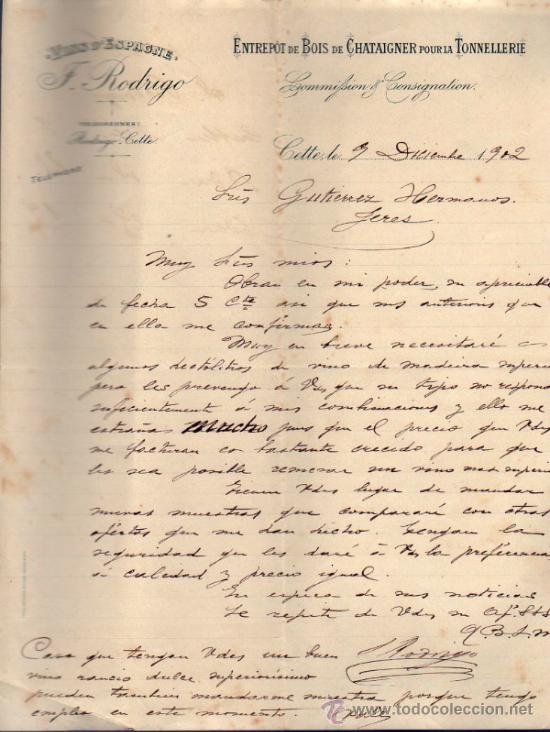 VINS D'ESPAGNE
F. Rodrigo
Rodrigo-Cette
TÉLÉPHONE
ENTREPÔT DE BOIS DE CHATAIGNER POUR LA TONNELLERIE
Commission & Consignation.
Cette, le 9 Diciembre 1902
Srés Gutierrez Hermanos.
Jeres.
Muy Srés mios:
Obran en mi poder, su apreciable
de fecha 5 Cte asi que sus anteriores que
en ella me confirman.
Muy en breve necesitaré
algunos hectolitros de vino de madeira superior
pero les prevengo á Vdes que su typo no responde
suficientemente á mis combinaciones y ello me
estrañas mucho pues que el precio que Vdes
me facturan es bastante crecido para que
les sea posible remesar un vino mas superior
Tienen Vdes lugar de mandar
nuevas muestras que compararé con otras
ofertas que me han hecho. Tengan la
seguridad que les daré á Vdes la preferencia
si calidad y precio igual.
En espera de sus noticias
Se repite de Vdes su af. S.S.S.
q B. S. M
F Rodrigo
Caso que tengan Vdes un buen
vino rancio dulce superiorisimo
pueden tambien mandarme muestra porque tengo
empleo en este momento.
todocoleccion
www.todocoleccion.net